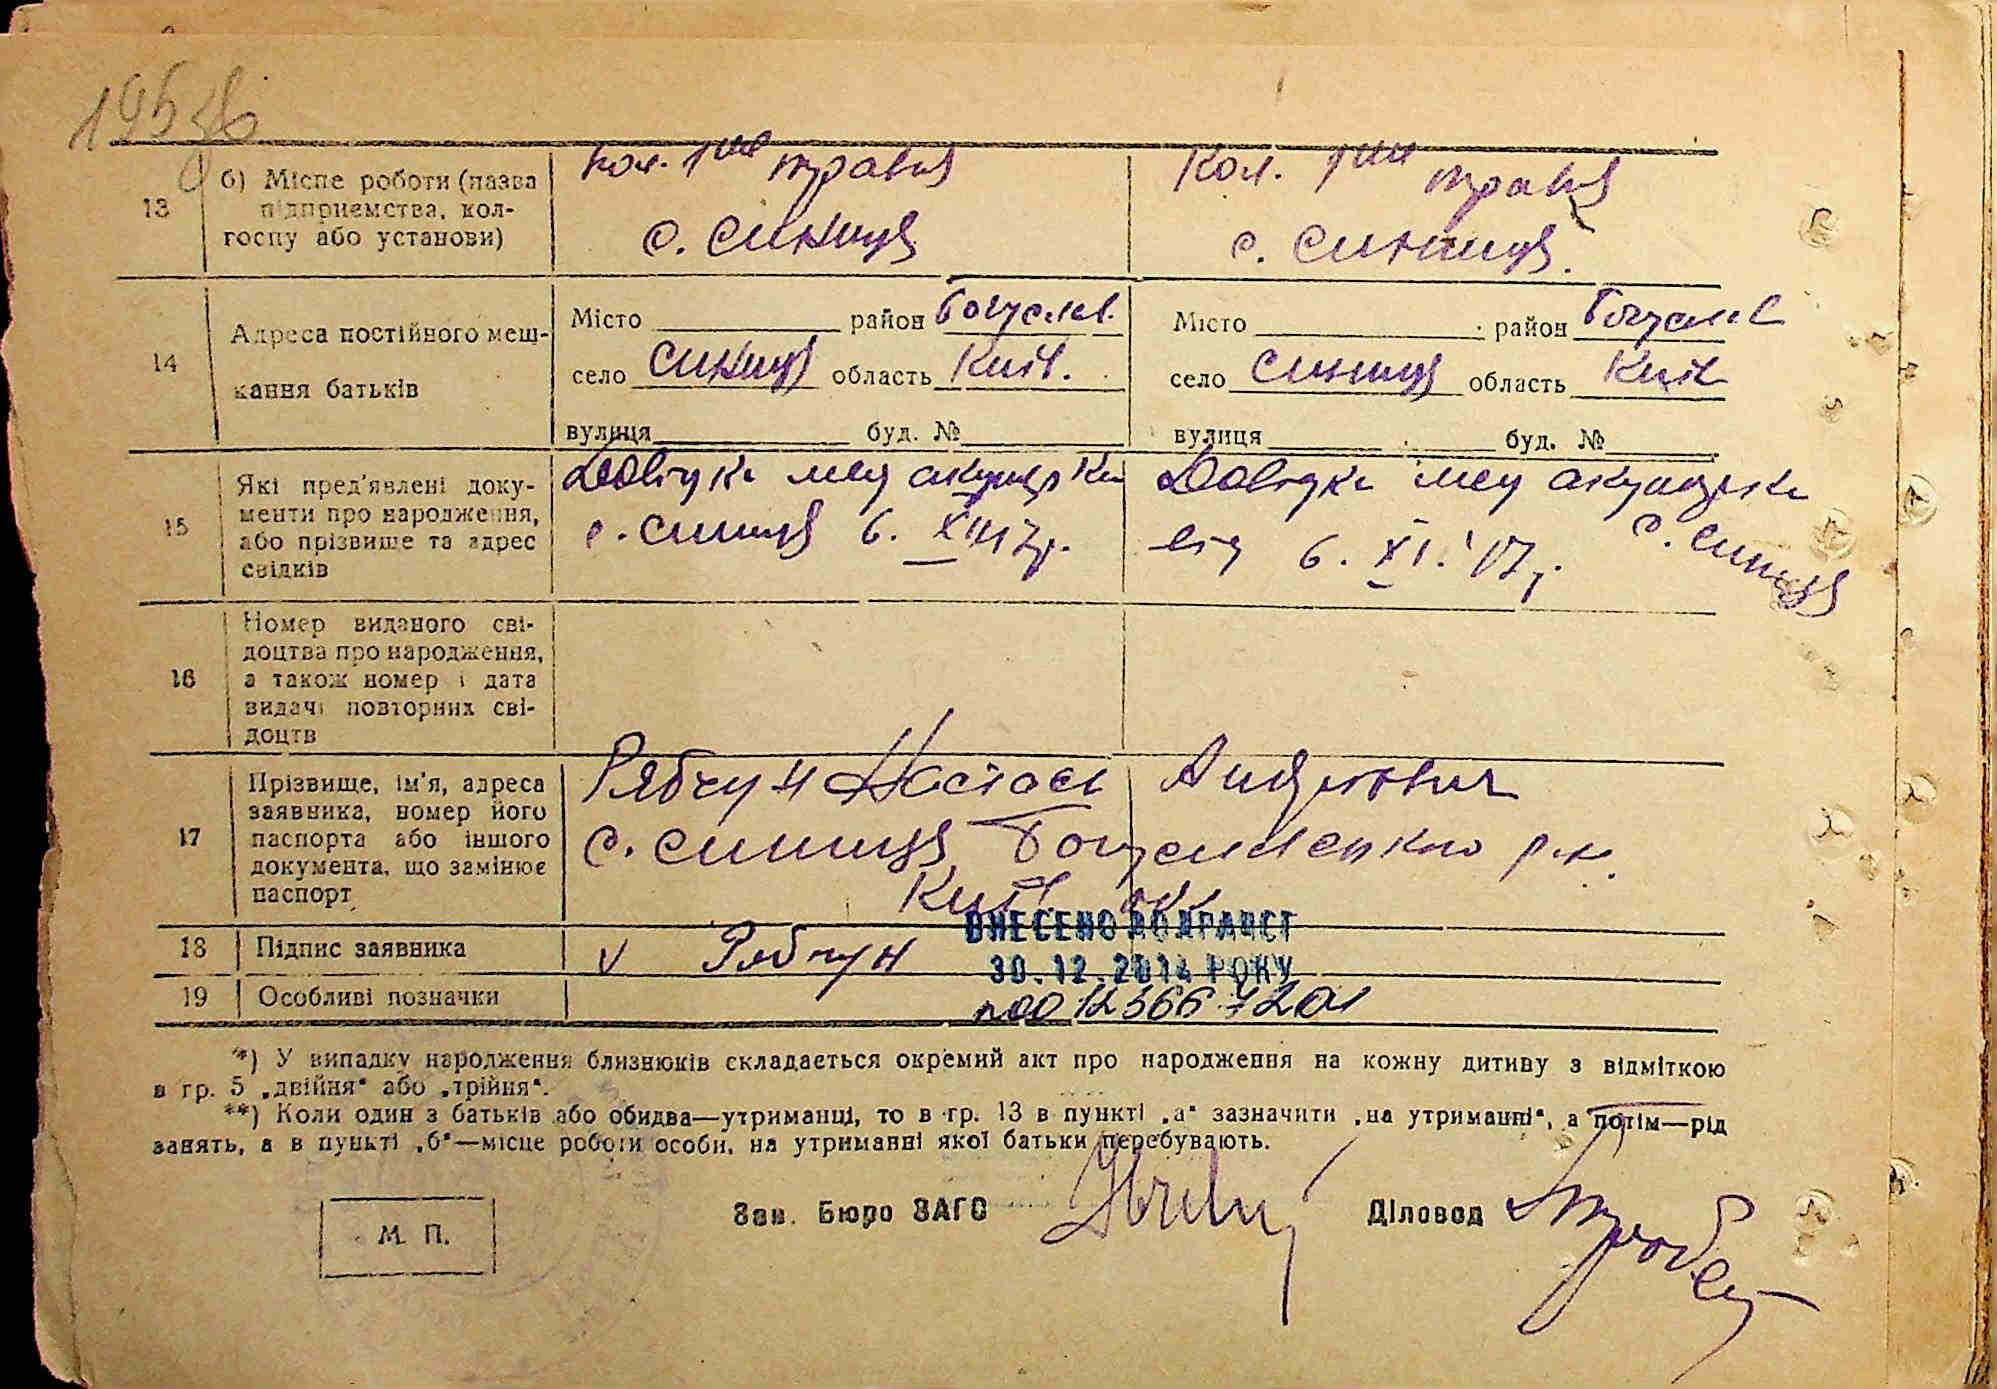 13
б) Місце роботи (назва
підприємства, кол-
госпу або установи)
Кол. 1ше травня
с. Синиця
Кол. 1ше травня
с. Синиця.
14
Адреса постійного меш-
кання батьків
Місто район Богуслав.
село Синиця область Київ.
вулиця буд. №
Місто район Богуслав
село Синиця область Київ
вулиця буд. №
15
Які пред'явлені доку-
менти про народження,
або прізвище та адрес
свідків
Довідка мед акушерки
с. Синиця 6.
Довідка мед акушерки
від 6. XI. 47 р. с. Синиця
16
Номер виданого сві-
доцтва про народження,
а також номер і дата
видачі повторних сві-
доцтв
17
Прізвище, ім'я, адреса
заявника, номер його
паспорта або іншого
документа, що замінює
паспорт
Рябчун
с. Синиця Богуславського р-ну.
Київ. обл.
18
Підпис заявника
v Рябчун
ВНЕСЕНО ДО ДРАЦСГ
30.12.2014 РОКУ
19
Особливі позначки
n00123667201
*) У випадку народження близнюків складається окремий акт про народження на кожну дитину з відміткою
в гр. 5 „двійня“ або „трійня“.
**) Коли один з батьків або обидва—утриманці, то в гр. 13 в пункті „а“ зазначити „на утриманні“, а потім—рід
занять, а в пункті „б“—місце роботи особи, на утриманні якої батьки перебувають.
М. П.
Зав. Бюро ЗАГС
Діловод